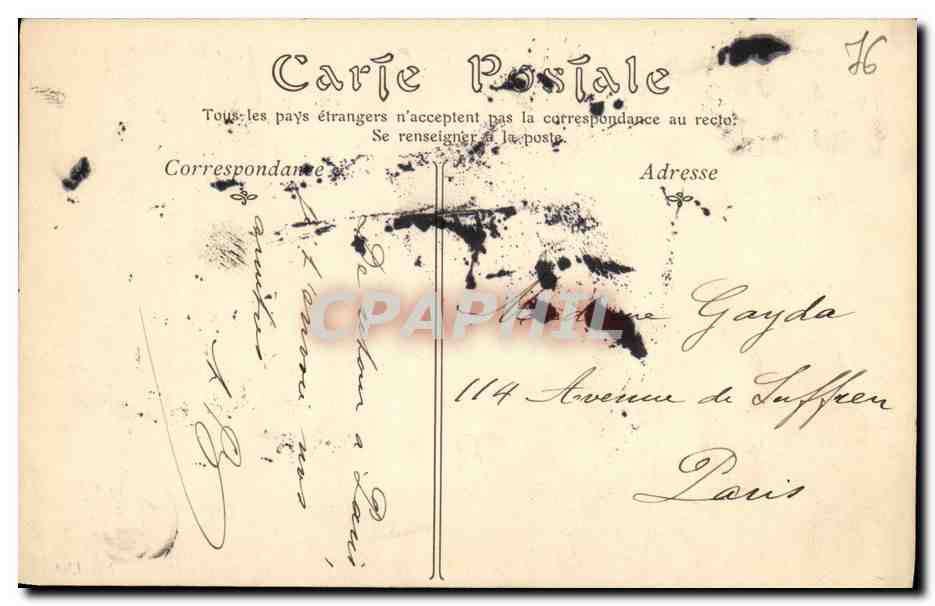 76
Carte Postale
Tous les pays étrangers n'acceptent pas la correspondance au recto.
Se renseigner à la poste.
Correspondance
Adresse
De retour a Paris
t'envoie nos
amitiés
Madame Gayda
114 Avenue de Suffren
Paris
CPAPHIL